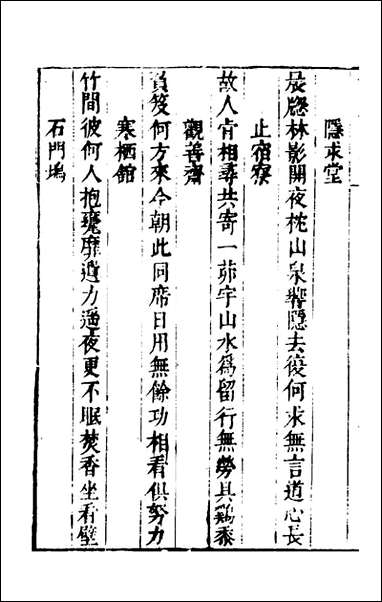 隱求堂
晨牕林影開夜枕山泉響隱去復何求無言道心長
止宿寮
故人肯相尋共寄一茆宇山水爲留行無勞具鷄黍
觀善齋
負笈何方來今朝此同席日用無餘功相看俱努力
寒栖館
竹間彼何人抱甕靡遺力遥夜更不眠焚香坐看壁
石門塢